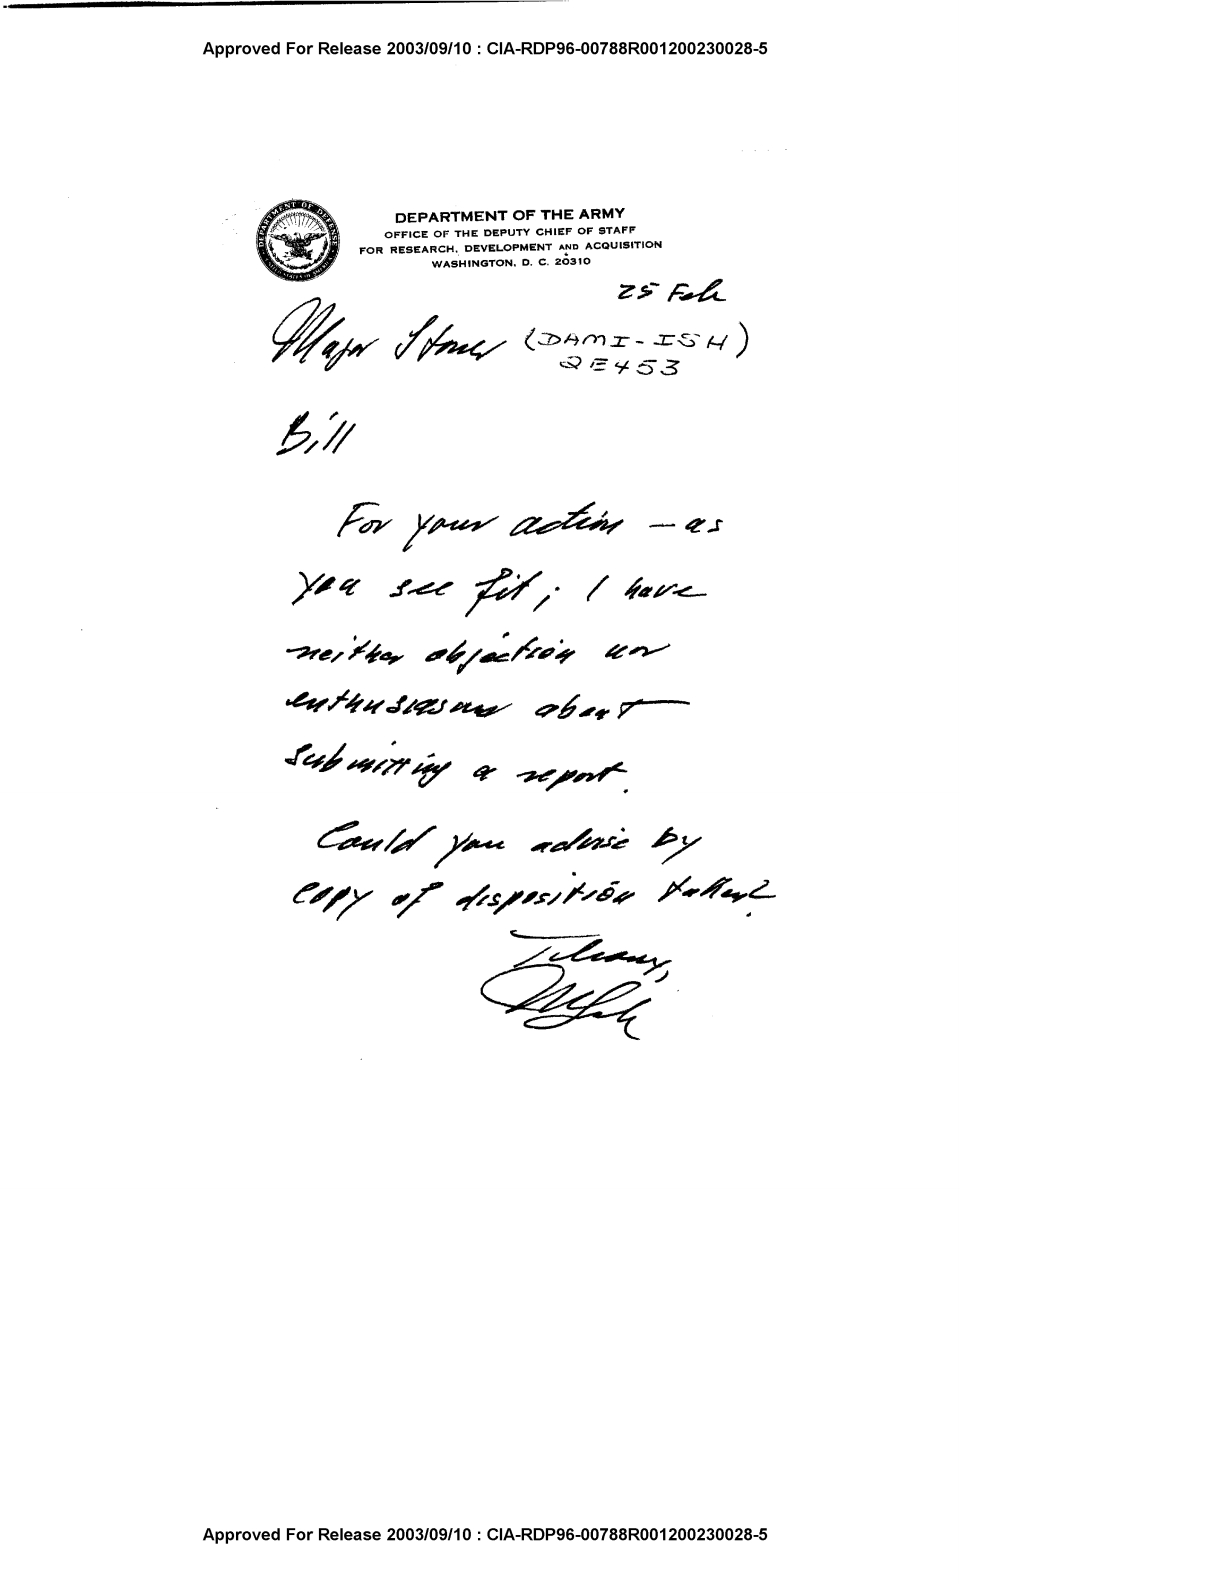 Approved For Release 2003/09/10 : CIA-RDP96-00788R001200230028-5
DEPARTMENT OF THE ARMY
OFFICE OF THE DEPUTY CHIEF OF STAFF
FOR RESEARCH, DEVELOPMENT AND ACQUISITION
WASHINGTON, D. C. 20310
25 Feb
Major Stoner (DAMI-ISH)
2E453
Bill
For your action — as
you see fit; I have
neither objection nor
enthusiasm about
submitting a report.
Could you advise by
copy of disposition taken?
Approved For Release 2003/09/10 : CIA-RDP96-00788R001200230028-5